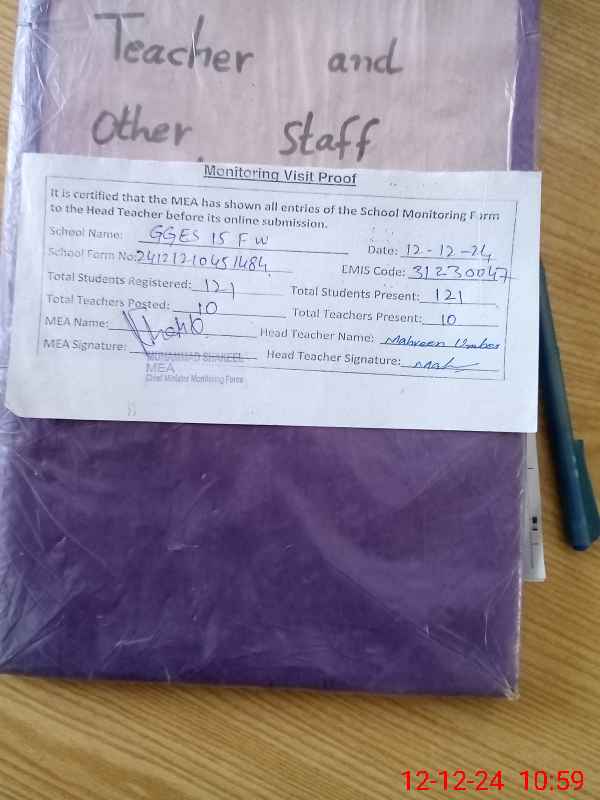 Teacher and
Other Staff
Monitoring Visit Proof
It is certified that the MEA has shown all entries of the School Monitoring Form
to the Head Teacher before its online submission.
School Name: GGES 15 F W Date: 12-12-24
School Form No: 24121210451484 EMIS Code: 31230047
Total Students Registered: 121 Total Students Present: 121
Total Teachers Posted: 10 Total Teachers Present: 10
MEA Name: Head Teacher Name: Mahreen Umber
MEA Signature: Head Teacher Signature:
MUHAMMAD SHAKEEL
MEA
Chief Minister Monitoring Force
12-12-24 10:59